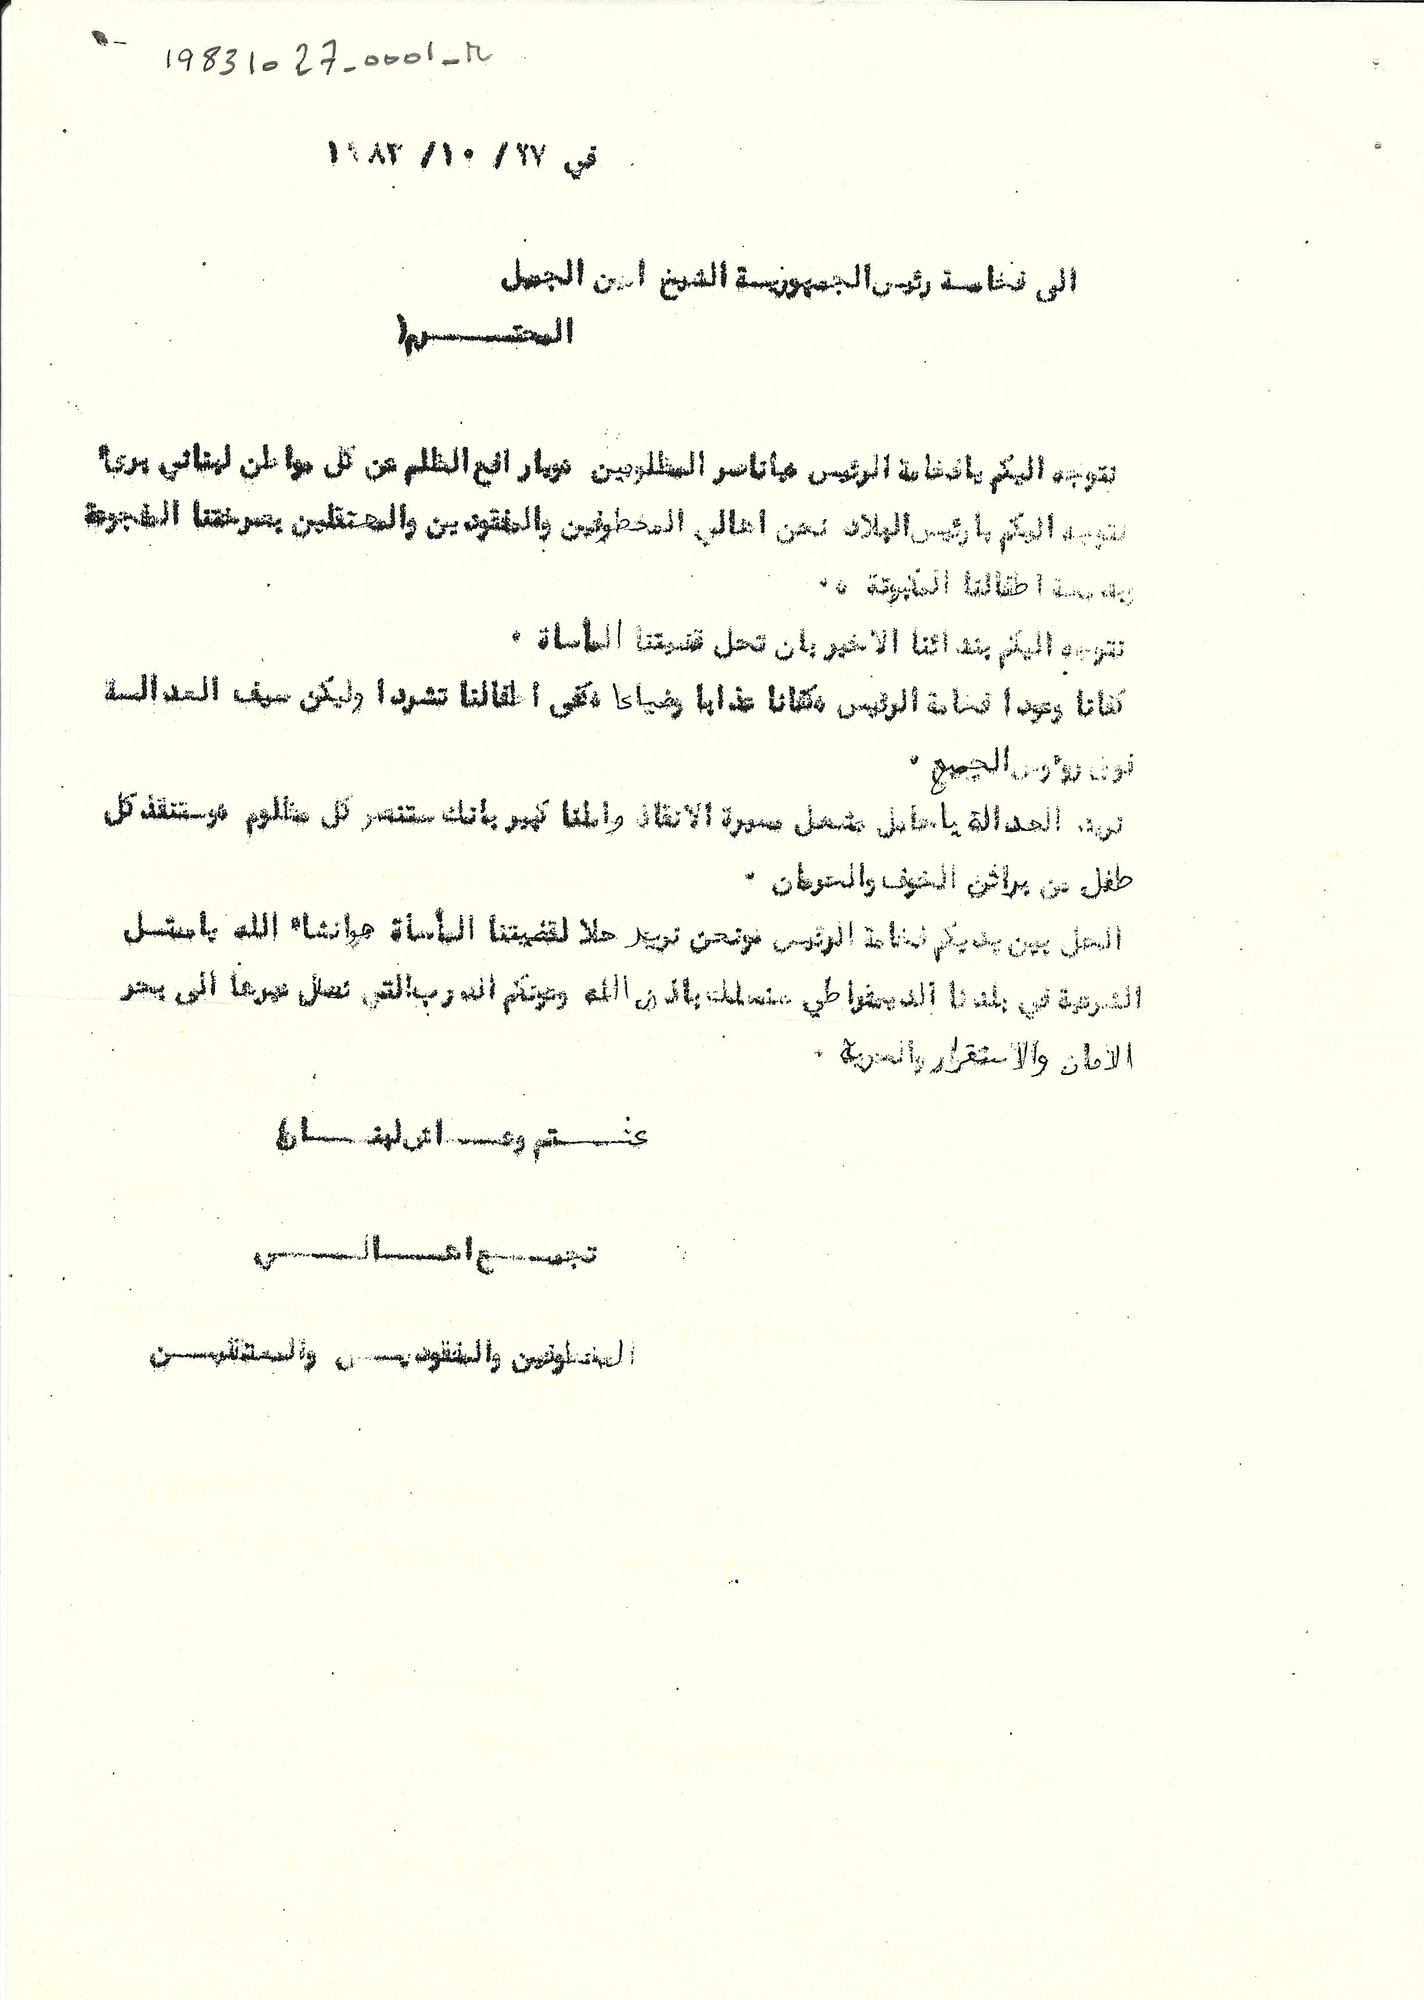 19831027_0001_R
في ٢٧ / ١٠/ ١٩٨٣
الى فخامة رئيس الجمهورية الشيخ امين الجميل
المحترم
نتوجه اليكم يافخامة الرئيس ،ياناصر المظلومين ،ويارافع الظلم عن كل مواطن لبناني بريء
نتوجه اليكم يا رئيس البلاد نحن اهالي المخطوفين والمفقودين والمعتقلين بصرختنا المفجوعة
وبدمعة اطفالنا المكبوتة ..
نتوجه اليكم بندائنا الاخير بان تحل قضيتنا المأساة .
كفانا وعودا فخامة الرئيس ،كفانا عذابا وضياعا ،كفى اطفالنا تشردا وليكن سيف العدالة
فوق رؤوس الجميع .
نريد العدالة ياحامل مشعل مسيرة الانقاذ واملنا كبير بانك ستنصر كل مظلوم ،وستنقذ كل
طفل من براثن الخوف والحرمان .
الحل بين يديكم فخامة الرئيس ،ونحن نريد حلا لقضيتنا المأساة ،وانشاء الله يا ممثل
الشرعية في بلدنا الديمقراطي سنسلك باذن الله وعونكم الدرب التي نصل عبرها الى بحر
الامان والاستقرار والحرية .
عشتم وعاش لبنان
تجمع اهالي
المخطوفين والمفقودين والمعتقلين